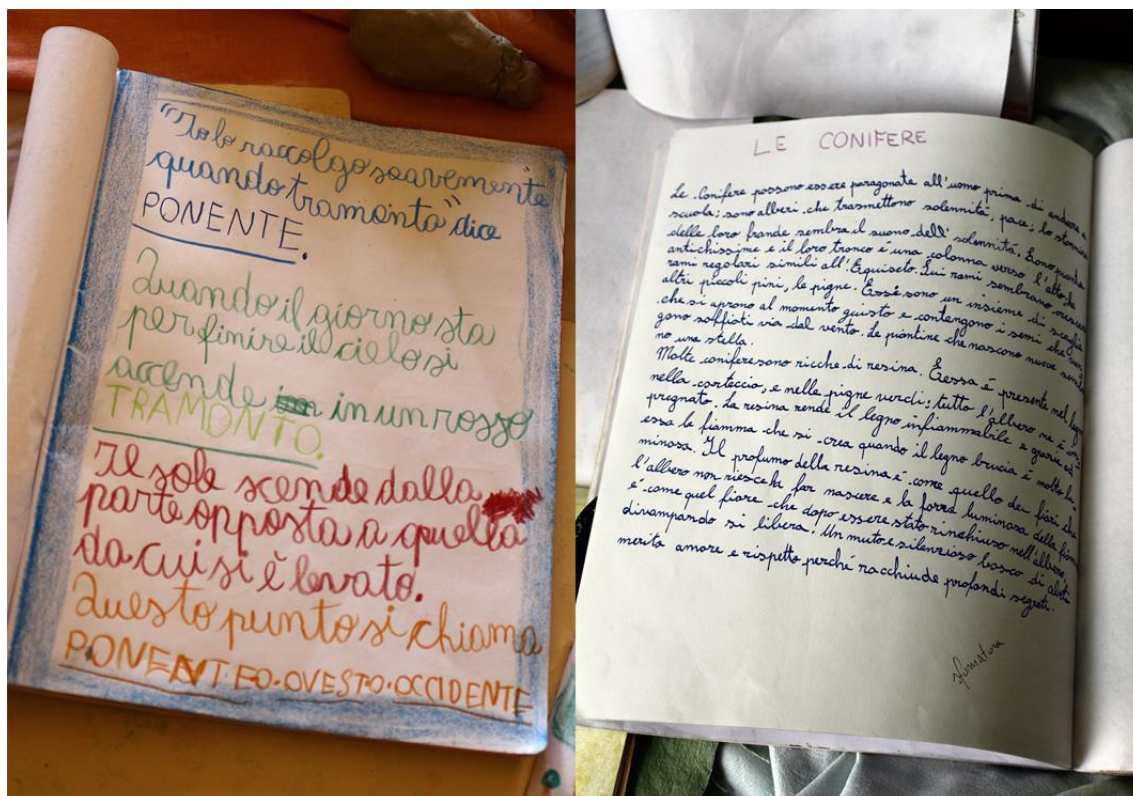 "Io lo raccolgo soavemente
quando tramonta" dice
PONENTE.
Quando il giorno sta
per finire il cielo si
accende in un rosso
TRAMONTO.
Il sole scende dalla
parte opposta a quella
da cui si è levato.
Questo punto si chiama
PONENTE O. OVEST O. OCCIDENTE
LE CONIFERE
Le Conifere possono essere paragonate all'uomo prima di andare a
scuola; sono alberi che trasmettono solennità, pace; lo stormire
delle loro fronde sembra il suono dell'solennità. Sono piante
antichissime e il loro tronco è una colonna verso l'alto, ha
rami regolari simili all'Equiseto. Sui rami sembrano crescere
altri piccoli pini, le pigne. Esse sono un insieme di scaglie
che si aprono al momento giusto e contengono i semi che ven
gono soffiati via dal vento. Le piantine che nascono nuove sembra
no una stella.
Molte conifere sono ricche di resina. Essa è presente nel legno
nella corteccia, e nelle pigne verdi: tutto l'albero ne è im
pregnato. La resina rende il legno infiammabile e grazie ad
essa la fiamma che si crea quando il legno brucia è molto lu
minosa. Il profumo della resina è come quello dei fiori che
l'albero non riesce a far nascere e la forza luminosa della fiamma
è come quel fiore che dopo essere stato rinchiuso nell'albero,
divampando si libera. Un muto e silenzioso bosco di abeti
merita amore e rispetto perché racchiude profondi segreti.
sfumatura